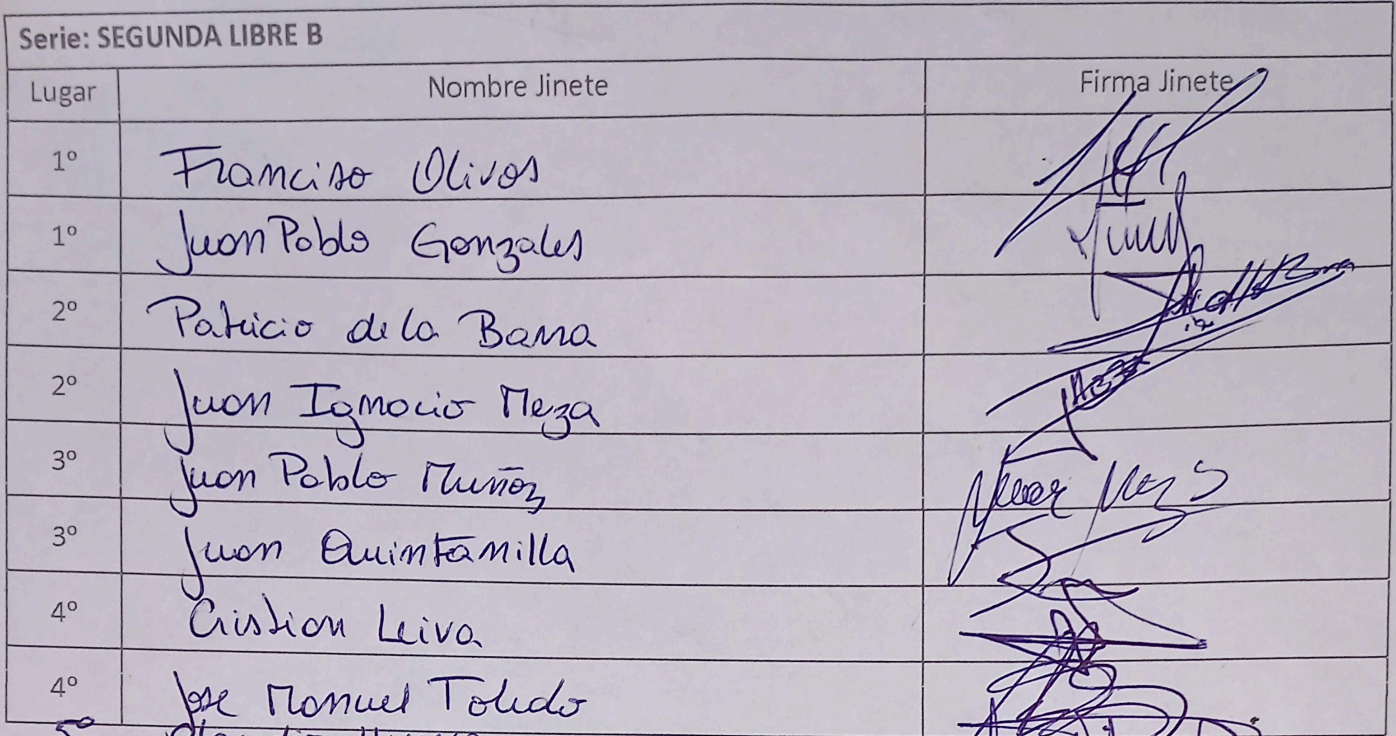 Serie: SEGUNDA LIBRE B
Lugar Nombre Jinete Firma Jinete
1º Franciso Olivos
1º Juan Pablo Gonzales
2º Patricio de la Barra
2º Juan Ignacio Meza
3º Juan Pablo Muñoz
3º Juan Quintanilla
4º Cristian Leiva
4º Jose Manuel Toledo
5º